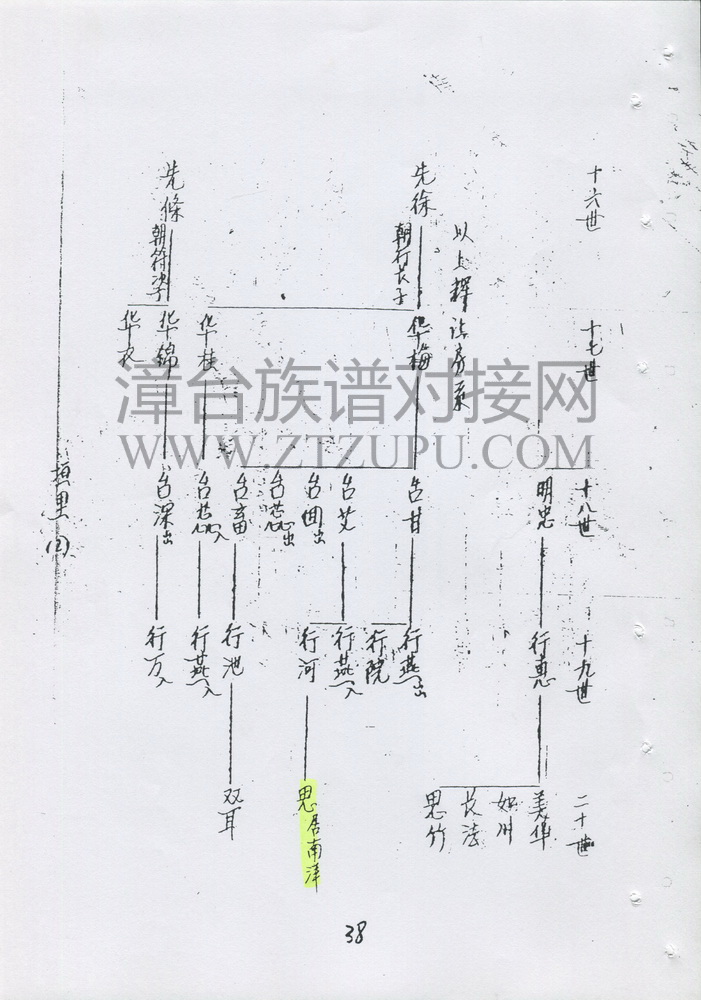 十六世
十七世
十八世
十九世
二十世
明忠
行惠
美华
如川
长法
思竹
以上择法房系
先徐
朝行长子
华梅
台甘
台艾
台曲出
台蕊出
台畜
行燕出
行院
行燕入
行河
思居南洋
华桂
台蕊入
行池
行燕入
双耳
先條
朝符姿
华锦
华衣
台深出
行万入
垣里(2)
38
漳台族谱对接网
WWW.ZTZUPU.COM